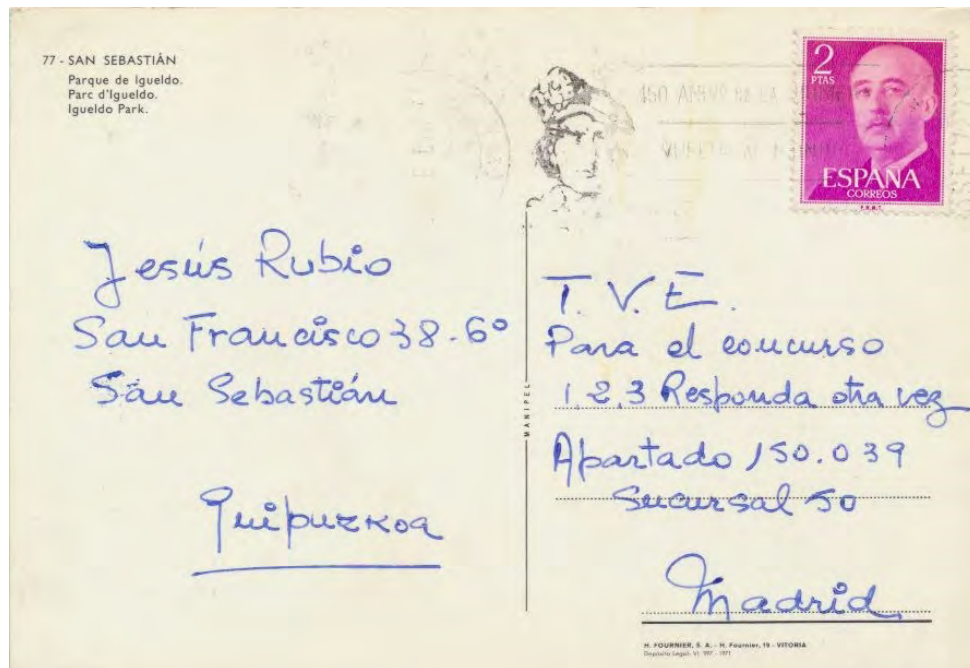 77 - SAN SEBASTIÁN
Parque de Igueldo.
Parc d'Igueldo.
Igueldo Park.
2
PTAS
ESPAÑA
CORREOS
F.N.M.T.
Jesús Rubio
San Francisco 38-6º
San Sebastián
Guipuzkoa
MANIPEL
T.V.E.
Para el concurso
1,2,3 Responda otra vez
Apartado 150.039
Sucursal 50
Madrid
H. FOURNIER, S. A. - H. Fournier, 19 - VITORIA
Depósito Legal: VI. 997 - 1971